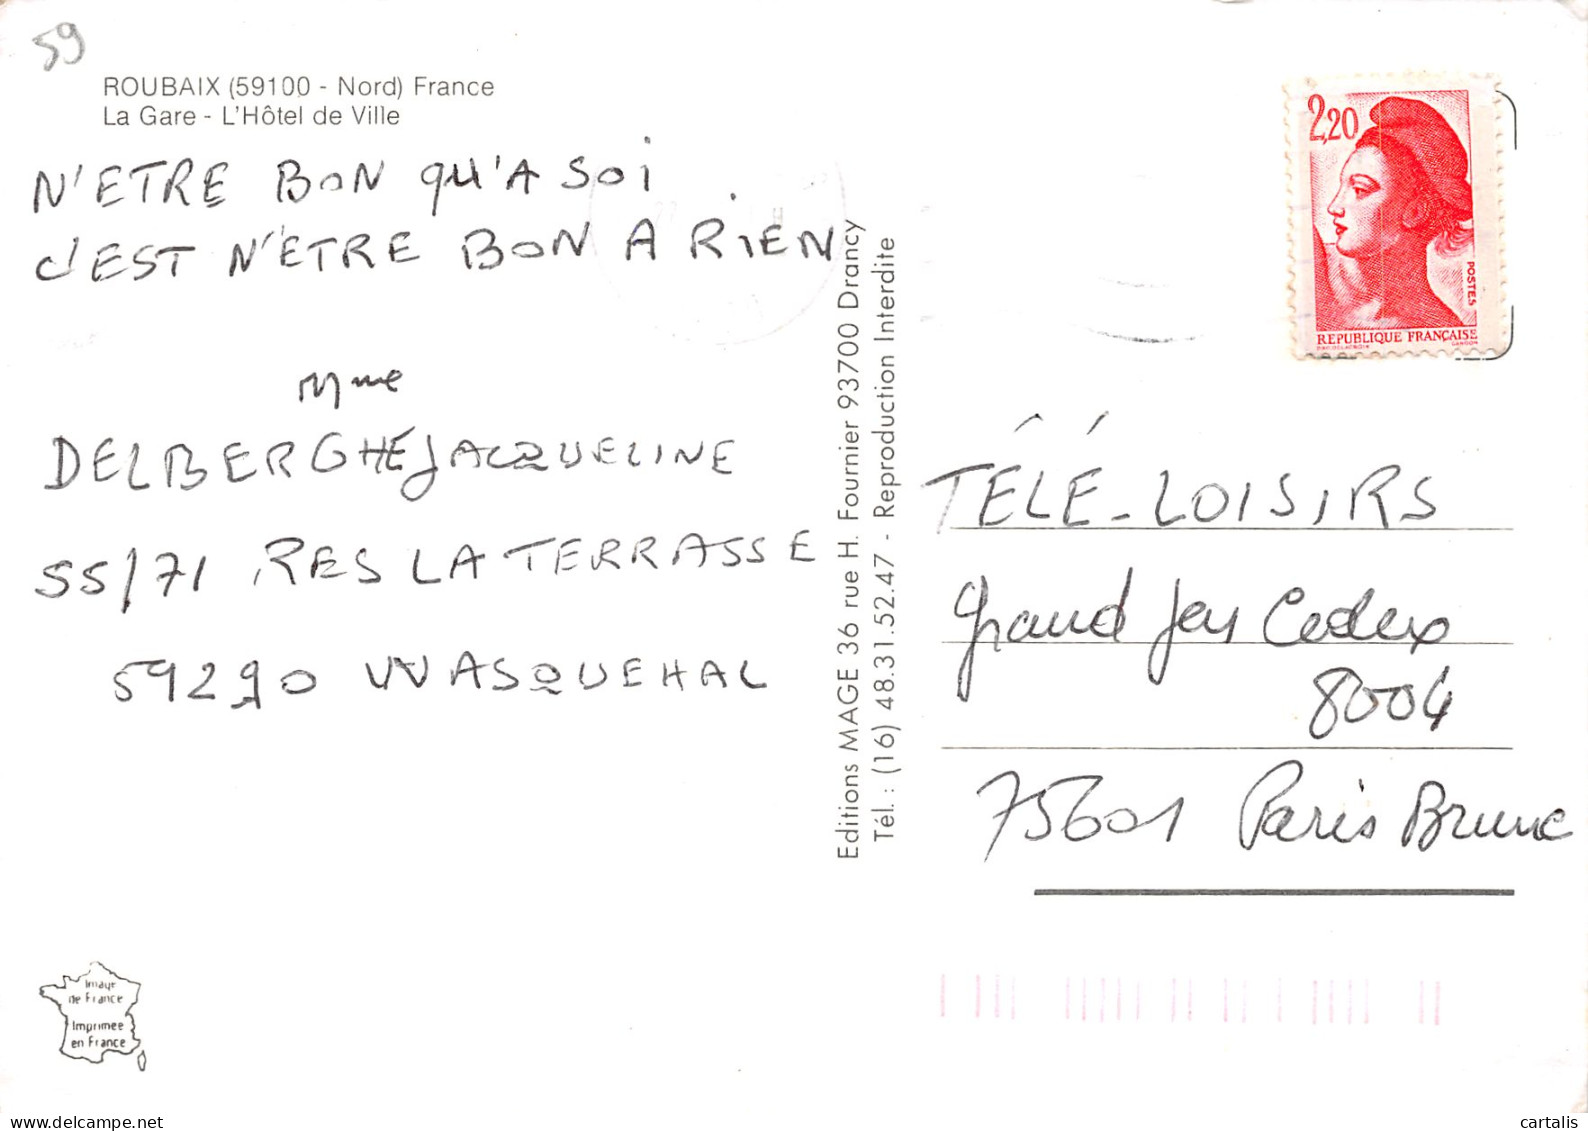 59
ROUBAIX (59100 - Nord) France
La Gare - L'Hôtel de Ville
N'ETRE BON QU'A SOI
C'EST N'ETRE BON A RIEN
Mme
DELBERGHE JACQUELINE
55/71 RES LA TERRASSE
59290 WASQUEHAL
Editions MAGE 36 rue H. Fournier 93700 Drancy
Tél. : (16) 48.31.52.47 - Reproduction Interdite
2,20
POSTES
REPUBLIQUE FRANÇAISE
TÉLÉ-LOISIRS
Grand Jeu Cedex
8004
75601 Paris Brune
Image
de France
Imprimee
en France
cartalis
delcampe.net